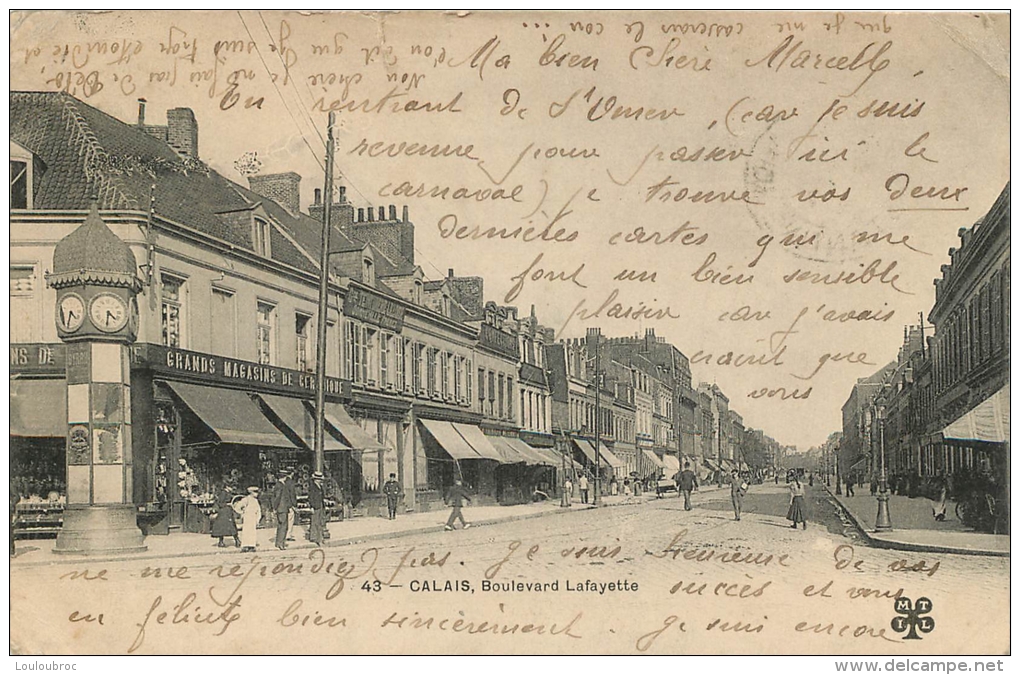 Ma bien Chère Marcelle,
En rentrant de St Omer, (car je suis
revenue pour passer ici le
carnaval) je trouve vos deux
dernières cartes qui me
font un bien sensible
plaisir car j'avais
craint que
vous
ne me répondiez pas. Je suis heureuse de vos
succès et vous
en félicite bien sincèrement. Je suis encore
que je me casserais le cou ...
Non chère je n'ai pas de
d'un œil que Je suis trop étourdie et
GRANDS MAGASINS DE
NS DE
43 — CALAIS, Boulevard Lafayette
M T
I L
Louloubroc
www.delcampe.net